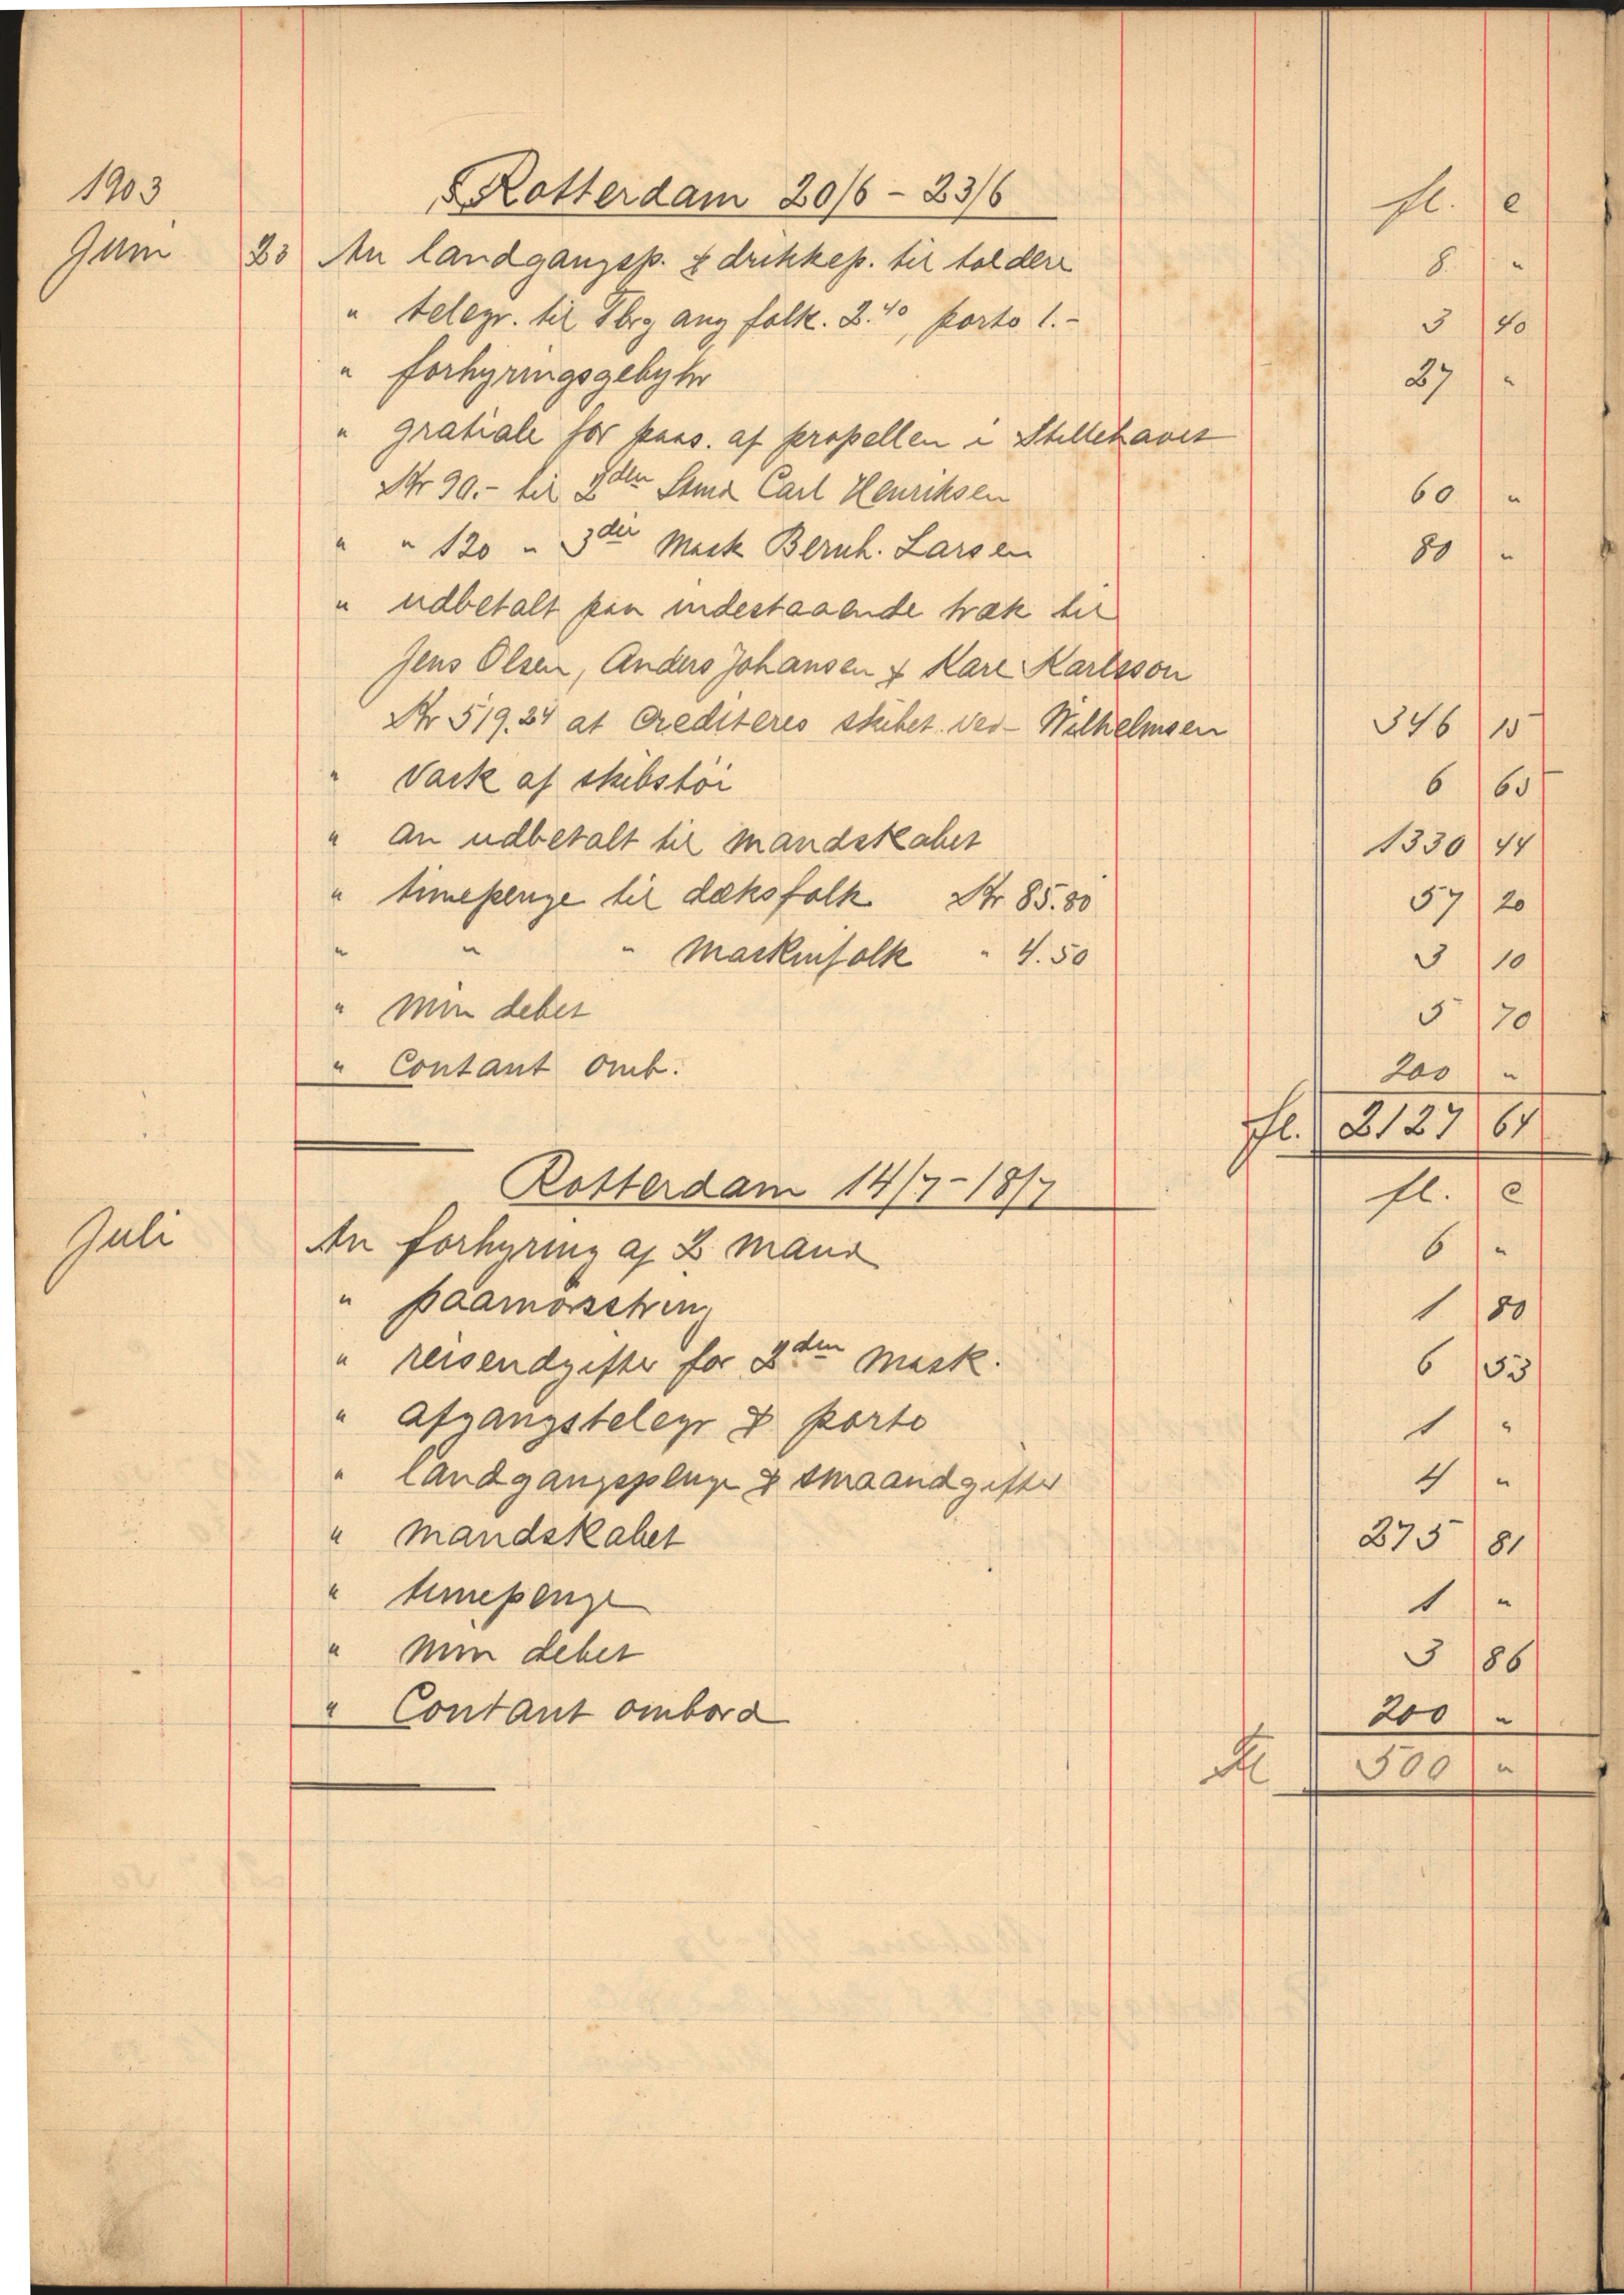 1903 Rotterdam 20/6 - 23/6 fl. c
Juni 23 An landgangsp. & drikkep. til toldere 8 "
" telegr. til Tbrg ang folk. 2.40, porto 1.- 3 40
" forhyringsgebyhr 27 "
" gratiale for paas. af propellen i Stillehavet
Kr 90.- til 2den Stmd Carl Henriksen 60 "
" " 120 " 3die Mask Bernh. Larsen 80 "
" udbetalt paa indestaaende træk til
Jens Olsen, Anders Johansen & Karl Karlsson
Kr 519.24 at crediteres skibet ved Wilhelmsen 346 15
" Vask af skibstöi 6 65
" an udbetalt til mandskabet 1330 44
" timepenge til dæksfolk Kr 85.80 57 20
" " " Maskinfolk " 4.50 3 10
" Min debet 5 70
" Contant omb. 200 "
fl. 2127 64
Rotterdam 14/7-18/7 fl. c
Juli An forhyring af 2 mand 6 "
" paamönstring 1 80
" reiseudgifter for 2den Mask. 6 53
" Afgangstelegr & porto 1 "
" landgangspenge & smaaudgifter 4 "
" Mandskabet 275 81
" timepenge 1 "
" Min debet 3 86
" Contant ombord 200 "
Fl 500 "